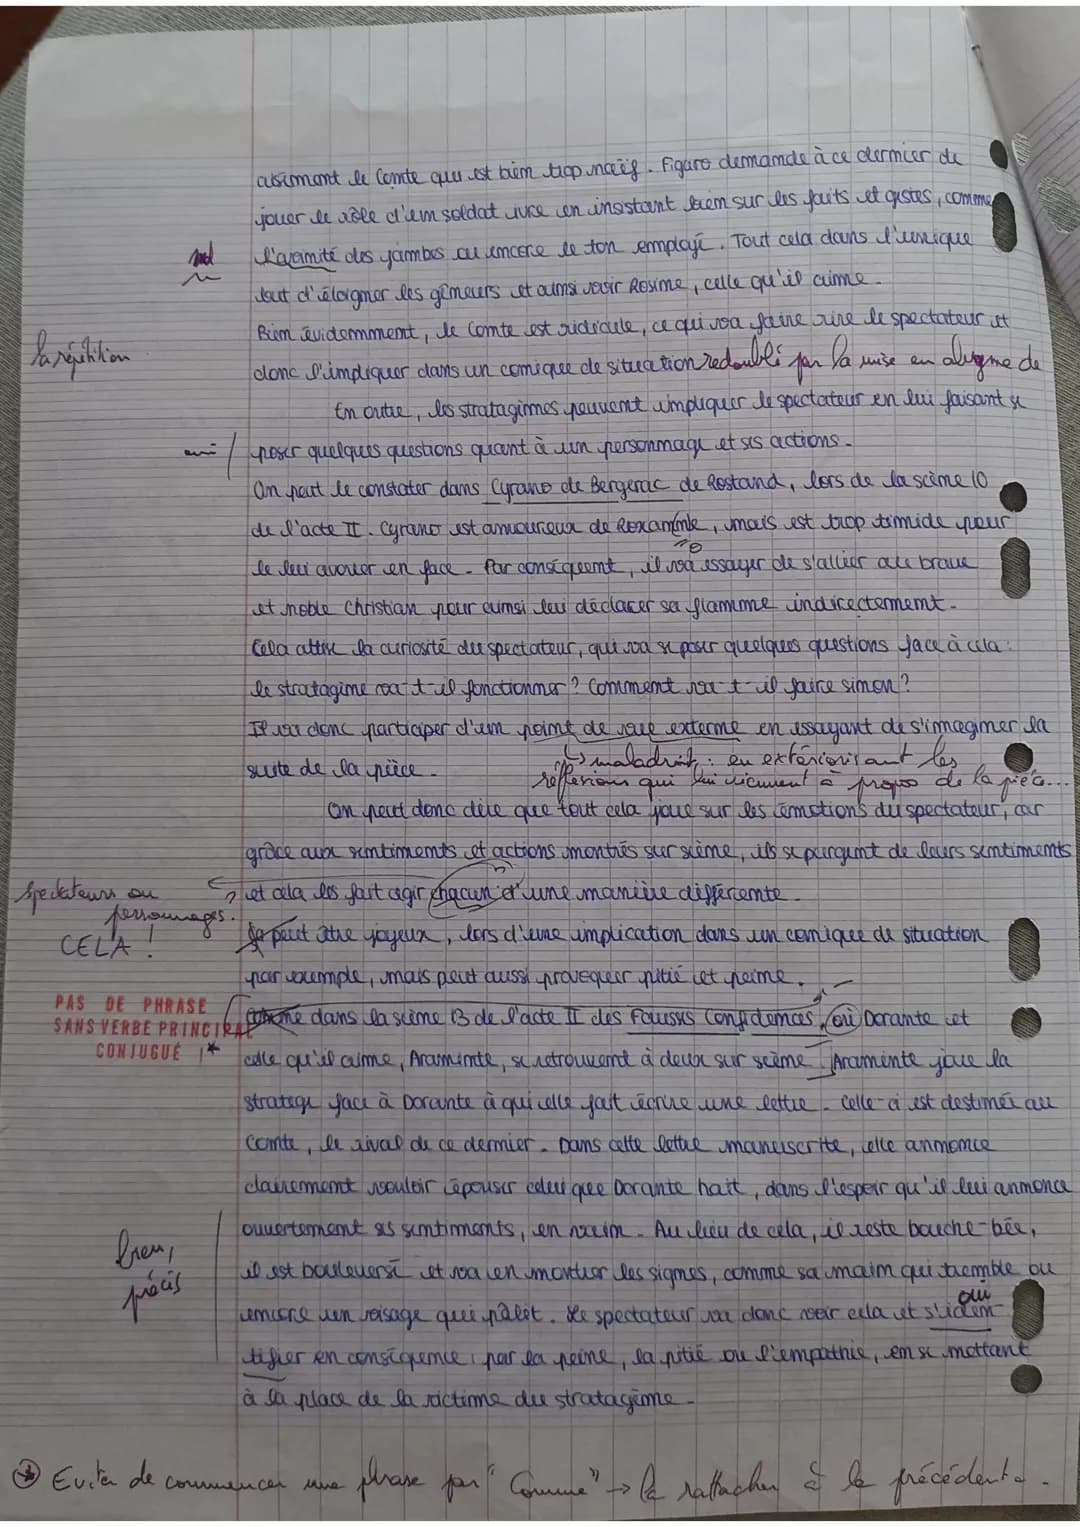 le Comte qui est bien trop naïf. Figaro demande à ce dernier de
jouer le rôle d'un soldat ivre en insistant bien sur les faits et gestes, comme
md l'avinité des jambes ou encore le ton employé. Tout cela dans l'unique
but d'éloigner les gêneurs et ainsi voir Rosine, celle qu'il aime.
Bien évidemment, le Comte est ridicule, ce qui va faire rire le spectateur et
la répétition
donc l'impliquer dans un comique de situation redoublé par la mise en abyme de
En outre, les stratagèmes peuvent impliquer le spectateur en lui faisant se
poser quelques questions quant à un personnage et ses actions.
On peut le constater dans Cyrano de Bergerac de Rostand, lors de la scène 10
de l'acte II. Cyrano est amoureux de Roxane, mais est trop timide pour
le lui avouer en face. Par conséquent, il va essayer de s'allier au brave
et noble Christian pour ainsi lui déclarer sa flamme indirectement.
Cela attise la curiosité du spectateur, qui va se poser quelques questions face à cela :
le stratagème va-t-il fonctionner ? Comment va-t-il faire sinon ?
Il va donc participer d'un point de vue externe en essayant de s'imaginer la
suite de la pièce.
↳ maladroit : en extériorisant les
réflexions qui lui viennent à propos de la pièce...
On peut donc dire que tout cela joue sur les émotions du spectateur, car
grâce aux sentiments et actions montrés sur scène, ils se purgent de leurs sentiments
spectateurs ou
personnages.
? et cela les fait agir chacun d'une manière différente.
CELA !
Ça peut être joyeux, lors d'une implication dans un comique de situation
par exemple, mais peut aussi provoquer pitié et peine.
PAS DE PHRASE
SANS VERBE PRINCIPAL
CONJUGUÉ ! *
Comme dans la scène 13 de l'acte II des Fausses Confidences, où Dorante et
celle qu'il aime, Araminte, se retrouvent à deux sur scène. Araminte joue la
stratège face à Dorante à qui elle fait écrire une lettre. Celle-ci est destinée au
Comte, le rival de ce dernier. Dans cette lettre manuscrite, elle annonce
clairement vouloir épouser celui que Dorante hait, dans l'espoir qu'il lui annonce
ouvertement ses sentiments, en vain. Au lieu de cela, il reste bouche-bée,
bien,
précis
il est bouleversé et va en montrer les signes, comme sa main qui tremble ou
encore un visage qui pâlit. Le spectateur va donc voir cela et s'iden-
oui
tifier en conséquence par la peine, la pitié ou l'empathie, en se mettant
à la place de la victime du stratagème.
* Eviter de commencer une phrase par "Comme" → la rattacher à la précédente.